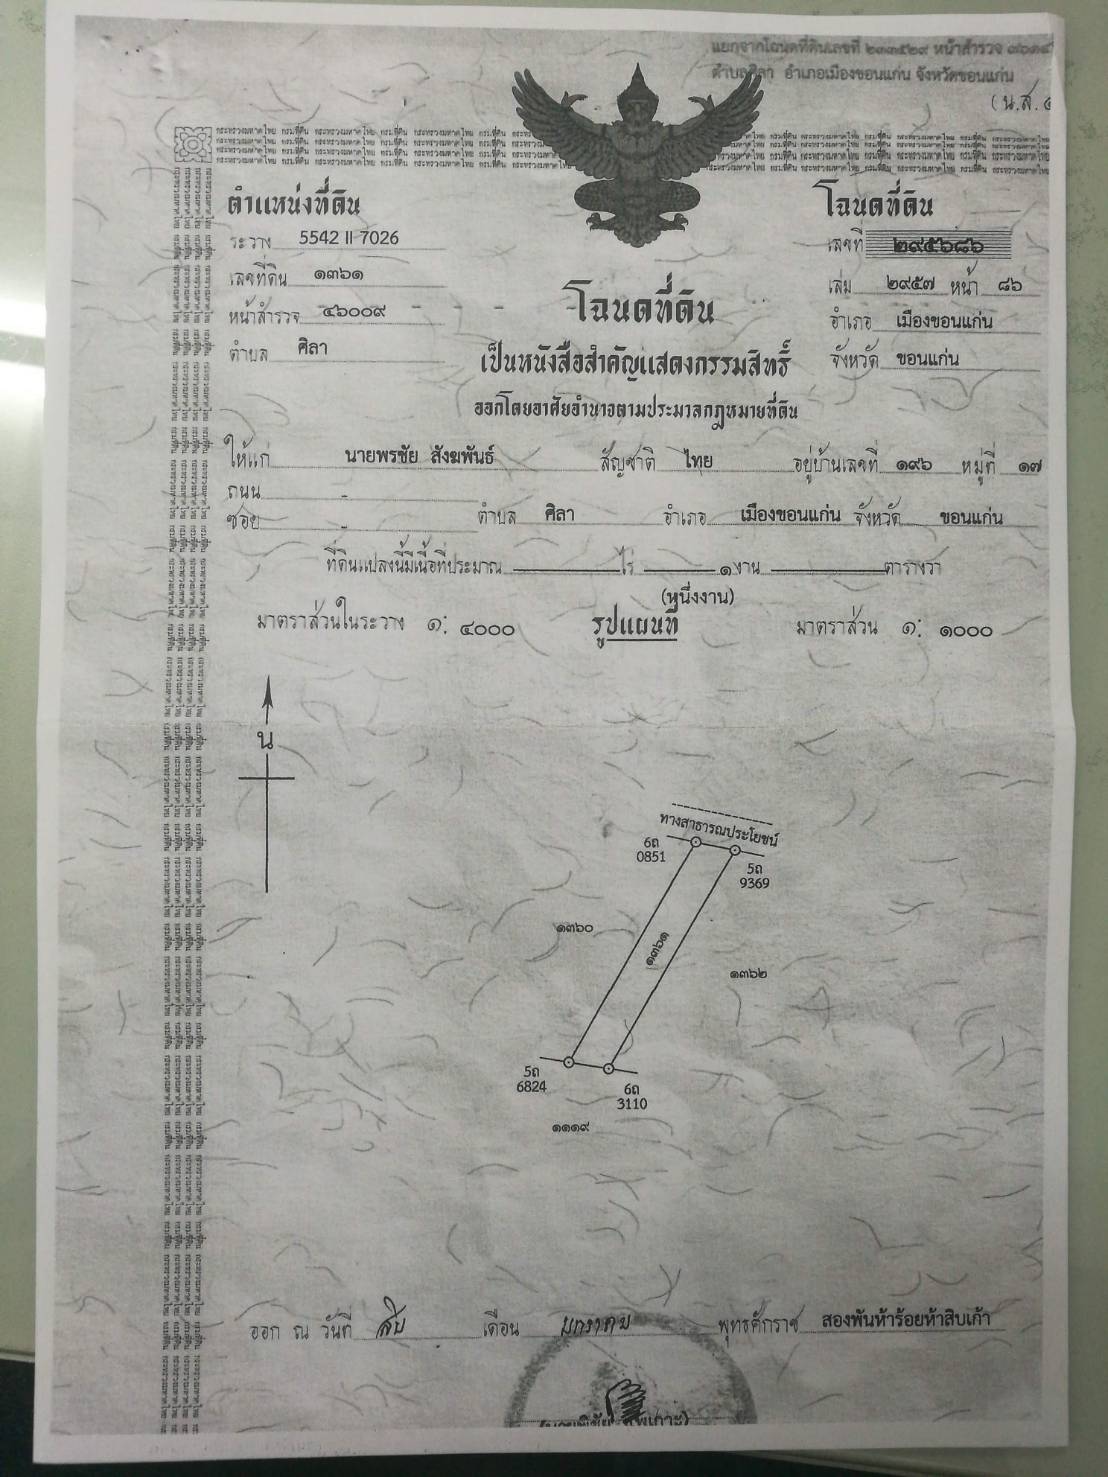 แยกจากโฉนดที่ดินเลขที่ ๒๓๓๕๒๙ หน้าสำรวจ
ตำบลศิลา อำเภอเมืองขอนแก่น จังหวัดขอนแก่น
(น.ส. ๔
กระทรวงมหาดไทย กรมที่ดิน กระทรวงมหาดไทย กรมที่ดิน กระทรวงมหาดไทย กรมที่ดิน
ตำแหน่งที่ดิน
ระวาง 5542 II 7026
เลขที่ดิน ๑๓๖๑
หน้าสำรวจ ๔๖๐๐๙
ตำบล ศิลา
โฉนดที่ดิน
เลขที่ ๒๙๕๖๘๖
เล่ม ๒๙๕๗ หน้า ๘๖
อำเภอ เมืองขอนแก่น
จังหวัด ขอนแก่น
โฉนดที่ดิน
เป็นหนังสือสำคัญแสดงกรรมสิทธิ์
ออกโดยอาศัยอำนาจตามประมวลกฎหมายที่ดิน
ให้แก่ นายพรชัย สังฆพันธ์ สัญชาติ ไทย อยู่บ้านเลขที่ ๑๙๖ หมู่ที่ ๑๗
ถนน -
ซอย - ตำบล ศิลา อำเภอ เมืองขอนแก่น จังหวัด ขอนแก่น
ที่ดินแปลงนี้มีเนื้อที่ประมาณ ไร่ ๑ งาน ตารางวา
(หนึ่งงาน)
มาตราส่วนในระวาง ๑: ๔๐๐๐ รูปแผนที่ มาตราส่วน ๑: ๑๐๐๐
น
ทางสาธารณประโยชน์
6ถ
0851
5ถ
9369
๑๓๖๐
๑๓๖๑
๑๓๖๒
5ถ
6824
6ถ
3110
๑๑๑๙
ออก ณ วันที่ สิบ เดือน มกราคม พุทธศักราช สองพันห้าร้อยห้าสิบเก้า